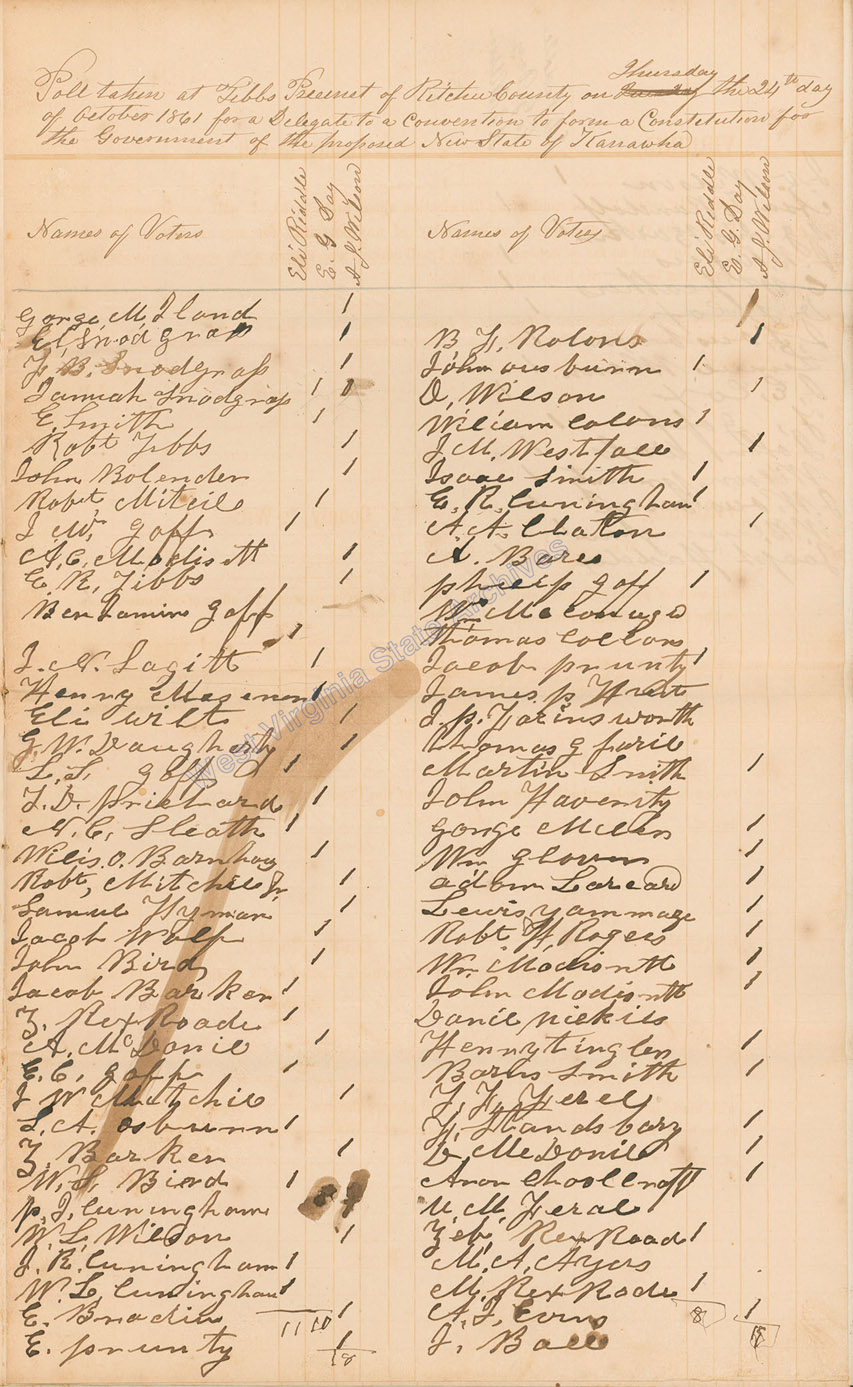 Thursday
Poll taken at Tibbs Precinct of Ritchie County on Tuesday the 24th day
of October 1861 for a Delegate to a Convention to form a Constitution for
the Government of the proposed New State of Kanawha
Names of Voters Eli Riddle E. G. Day A. J. Wilson Names of Voters Eli Riddle E. G. Day A. J. Wilson
1 1
Gorge M. Iland
El, Snodgrass 1 B F, Rolons 1
F B. Snodgrass 1 John ousburn 1
Snodgrass 1 D, Wilson 1
E, Smith 1 William Colons 1
Robt Tibbs 1 J M, Westfall 1
John Bolender 1 Isaac Smith 1
Robt, Mitcil 1 E. R. Cuningham 1
J W, goff 1 A. A. Claton 1
A, C, Modisett 1 A. Bares
E. R, Tibbs 1 pheelp goff 1
Ben Jamine goff 1 Wm
Thomas Collons
J. N. Lagitt 1 Jacob prunty 1
Henry 1 James p Hust
Eli wilt 1 J. p. Farinsworth
G. W. Daugherty 1 thomas g
L. S, goff 1 Martin Smith 1
T. D. prichard 1 John Haverity
N. C, Sleath 1 gorge Milen 1
Wilis. O. Barnhog 1 Wm glover 1
Robt, Mitchil Jr 1 adom 1
Samuel Hyman 1 Lewis yammage 1
Jacob Wolf 1 Robt H, Rogers 1
John Bird 1 Wm Modisntt 1
Jacob Barker 1 John Modisntt 1
Z. RexRoade 1 Danil Nickils
A. McDonil 1 Henry tinglen 1
E. C, goff 1 Barns Smith 1
J W Mitchil 1 F, F, Ferel
L. A. osburnn 1 H, Standsbary 1
Z. Barker 1 D. McDonil 1
W. S, Bird 1 Aron 1
p. J, Cuningham U M Feral
W. L Wilson 1 Zeb, RexRoad 1
J. R. Cuningham 1 M. A, Ayers
W. L, Cuningham 1 M, RexRode 1
E. 11 10 1 A. J, 8 1
E. prunty 1 J. Ball 15
18
West Virginia State Archives